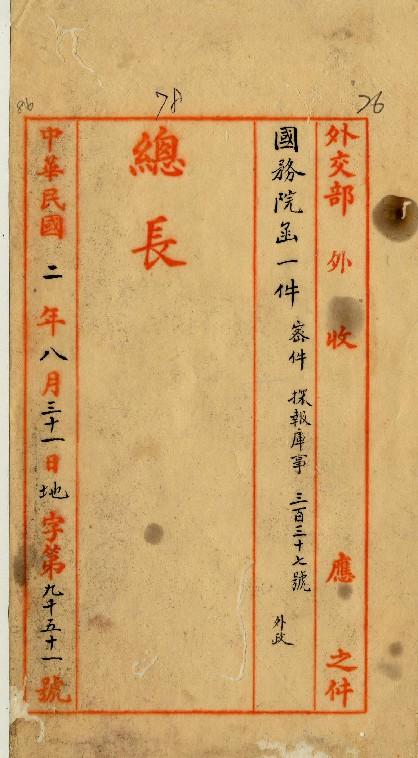 86
78
26
外交部 外 收 應 之件
國務院函一件 密件 探報庫事 三百三十七號 外政
總長
中華民國二年八月三十一日地字第九千五十一號